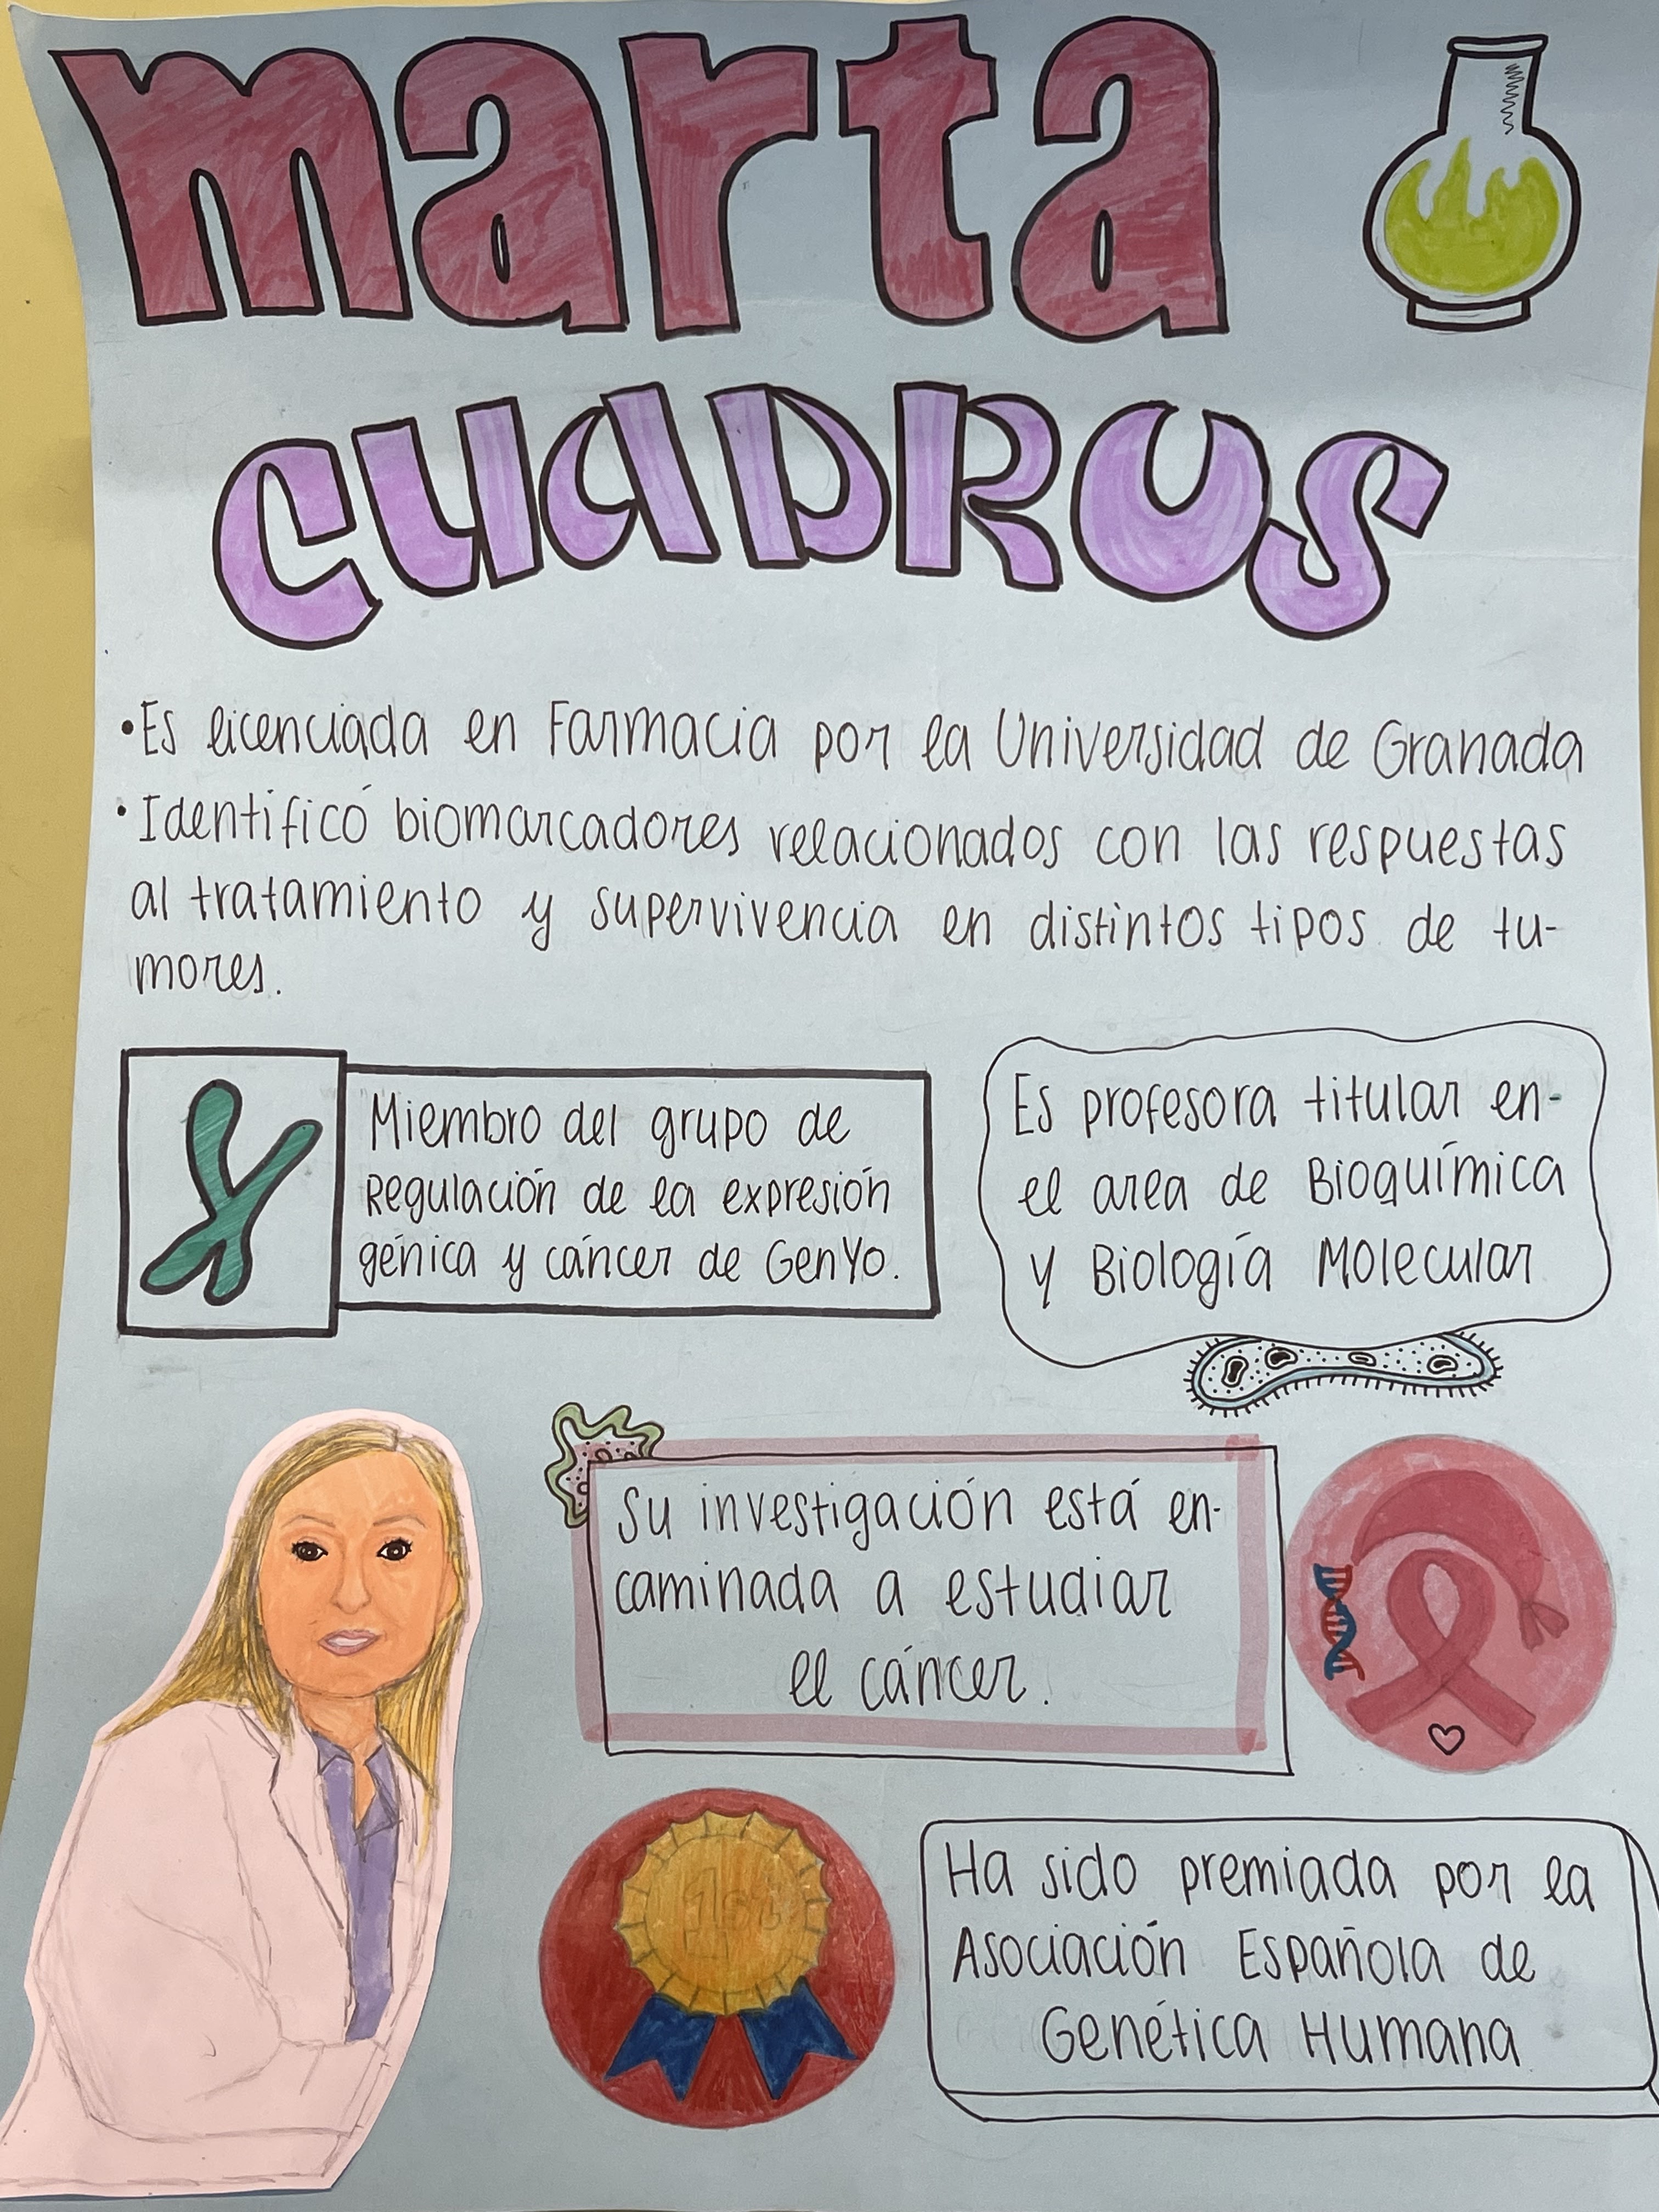 marta
CUADROS
•Es licenciada en Farmacia por la Universidad de Granada
•Identificó biomarcadores relacionados con las respuestas
al tratamiento y supervivencia en distintos tipos de tu-
mores.
Miembro del grupo de
Regulación de la expresión
génica y cáncer de GenYo.
Es profesora titular en-
el area de Bioquímica
y Biología Molecular
Su investigación está en-
caminada a estudiar
el cáncer.
1st
Ha sido premiada por la
Asociación Española de
Genética Humana